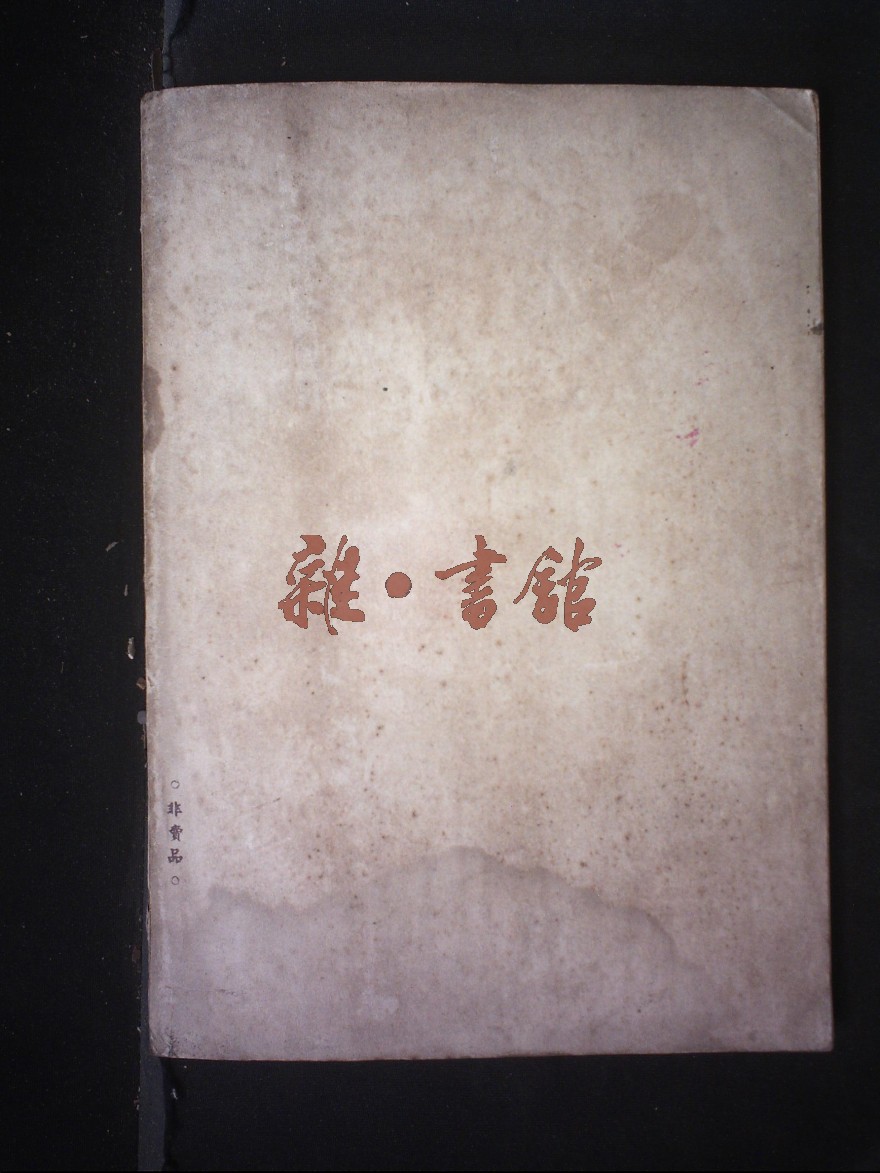 雜·書館
○非賣品○